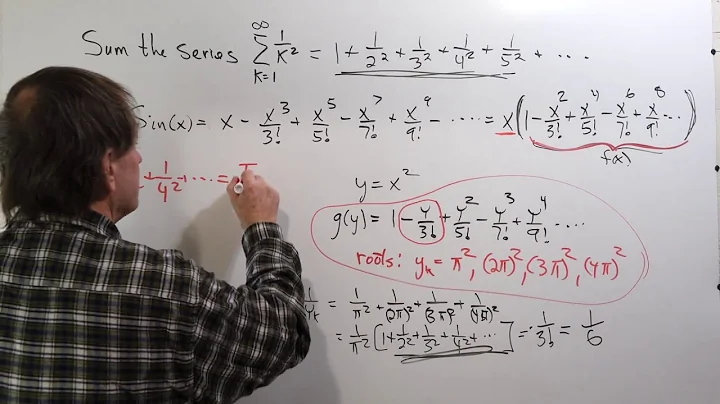 Sum the series ∑_{K=1}^{∞} 1/K² = 1 + 1/2² + 1/3² + 1/4² + 1/5² + ...
Sin(x) = x - x³/3! + x⁵/5! - x⁷/7! + x⁹/9! - .... = x(1 - x²/3! + x⁴/5! - x⁶/7! + x⁸/9! ...)
f(x)
+ 1/4² + ... =
y = x²
g(y) = 1 - y/3! + y²/5! - y³/7! + y⁴/9! ....
roots: yₖ = π², (2π)², (3π)², (4π)²
= 1/π² + 1/(2π)² + 1/(3π)² + 1/(4π)²
= 1/π² [1 + 1/2² + 1/3² + 1/4² + ...] = 1/3! = 1/6